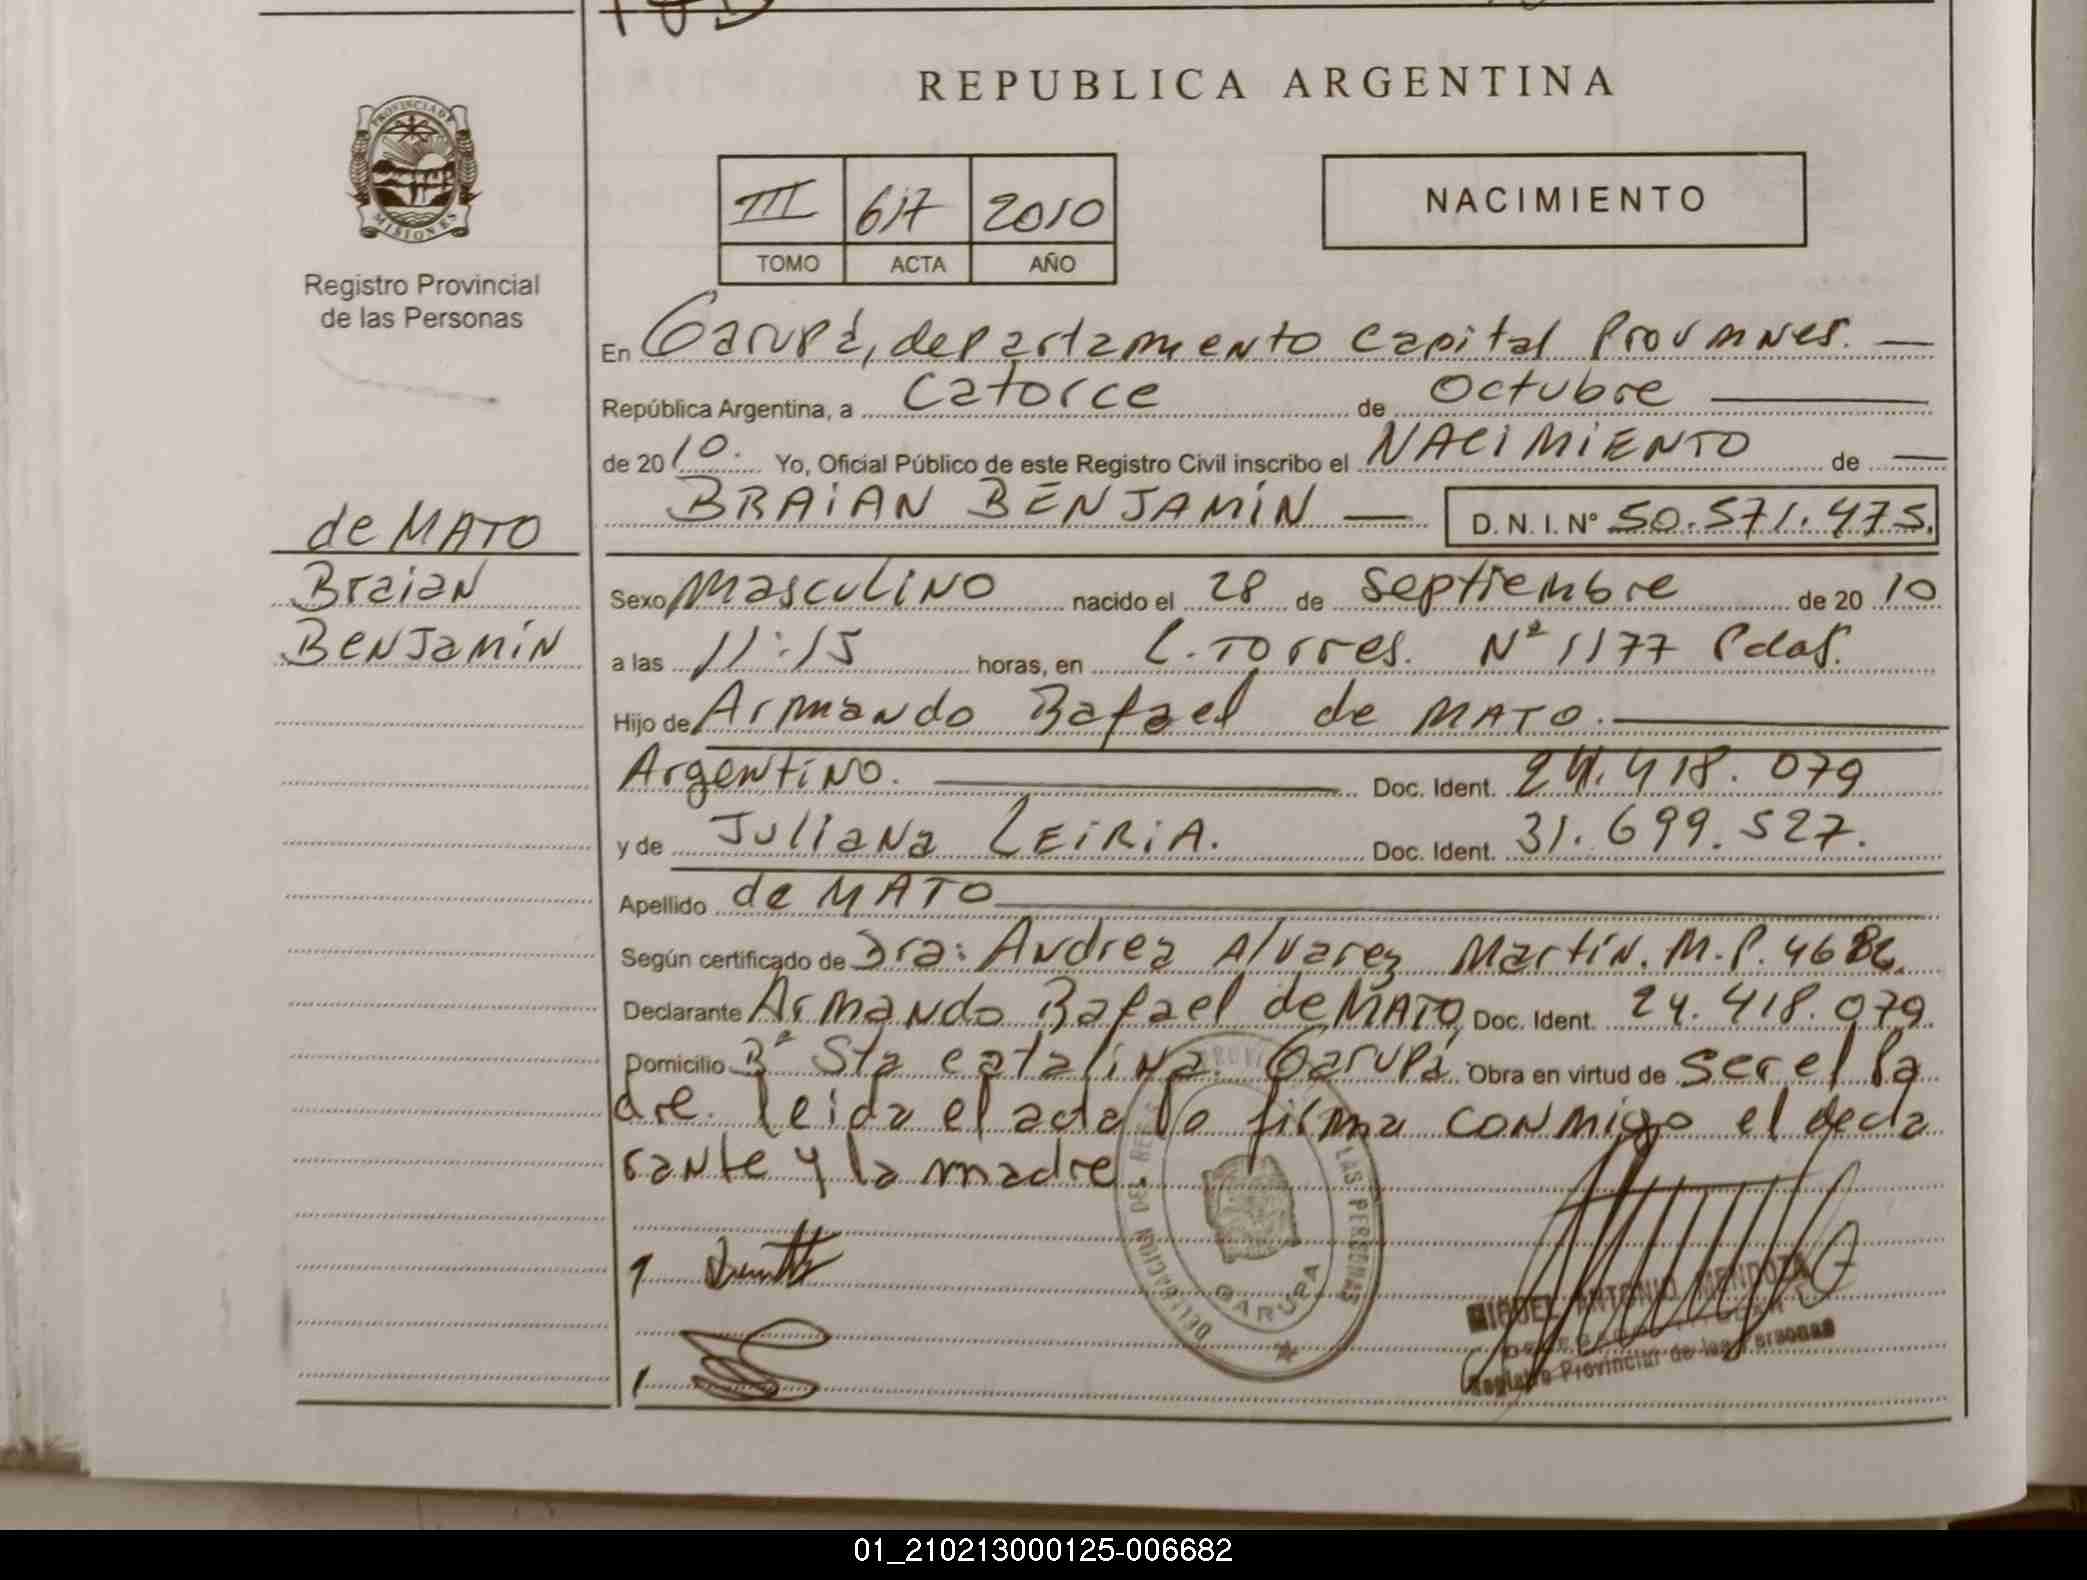 REPUBLICA ARGENTINA
PROVINCIA DE
MISIONES
Registro Provincial
de las Personas
III 617 2010
TOMO ACTA AÑO
NACIMIENTO
En Garupá, departamento Capital Prov Mnes.
República Argentina, a Catorce de Octubre
de 2010. Yo, Oficial Público de este Registro Civil inscribo el NACIMIENTO de
BRAIAN BENJAMÍN D. N. I. Nº 50.571.475.
de MATO
Braian
Benjamín
Sexo Masculino nacido el 28 de Septiembre de 2010
a las 11:15 horas, en L. Torres. Nº 1177 Pdas.
Hijo de Armando Rafael de MATO.
Argentino. Doc. Ident. 24.418.079
y de Juliana LEIRIA. Doc. Ident. 31.699.527.
Apellido de MATO
Según certificado de Dra: Andrea Alvarez Martín. M.P.
Declarante Armando Rafael de MATO, Doc. Ident. 24.418.079.
Domicilio Bº Sta Catalina. Garupá. Obra en virtud de ser el Pa
dre. leida el acta la firma conmigo el decla
rante y la madre.
DELEGACION DEL LAS PERSONAS
GARUPA
MIGUEL ANTONIO MENDOZA
Registro Provincial de las Personas
01_210213000125-006682